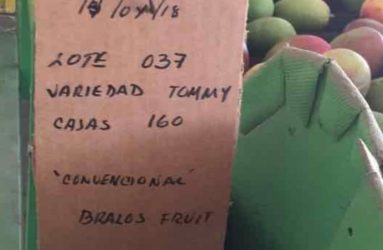 LOTE 037
VARIEDAD TOMMY
CAJAS 160
"CONVENCIONAL"
BRALOS FRUIT